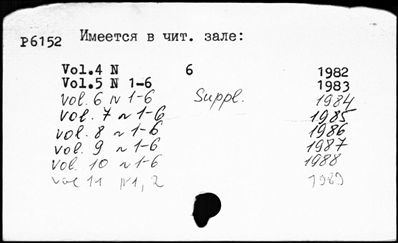 P6152 Имеется в чит. зале:
Vol.4 N 6 1982
Vol.5 N 1-6 1983
Vol. 6 N 1-6 Suppl. 1984
Vol. 7 N 1-6 1985
Vol. 8 N 1-6 1986
Vol. 9 N 1-6 1987
Vol. 10 N 1-6 1988
Vol 11 N1, 2 1989